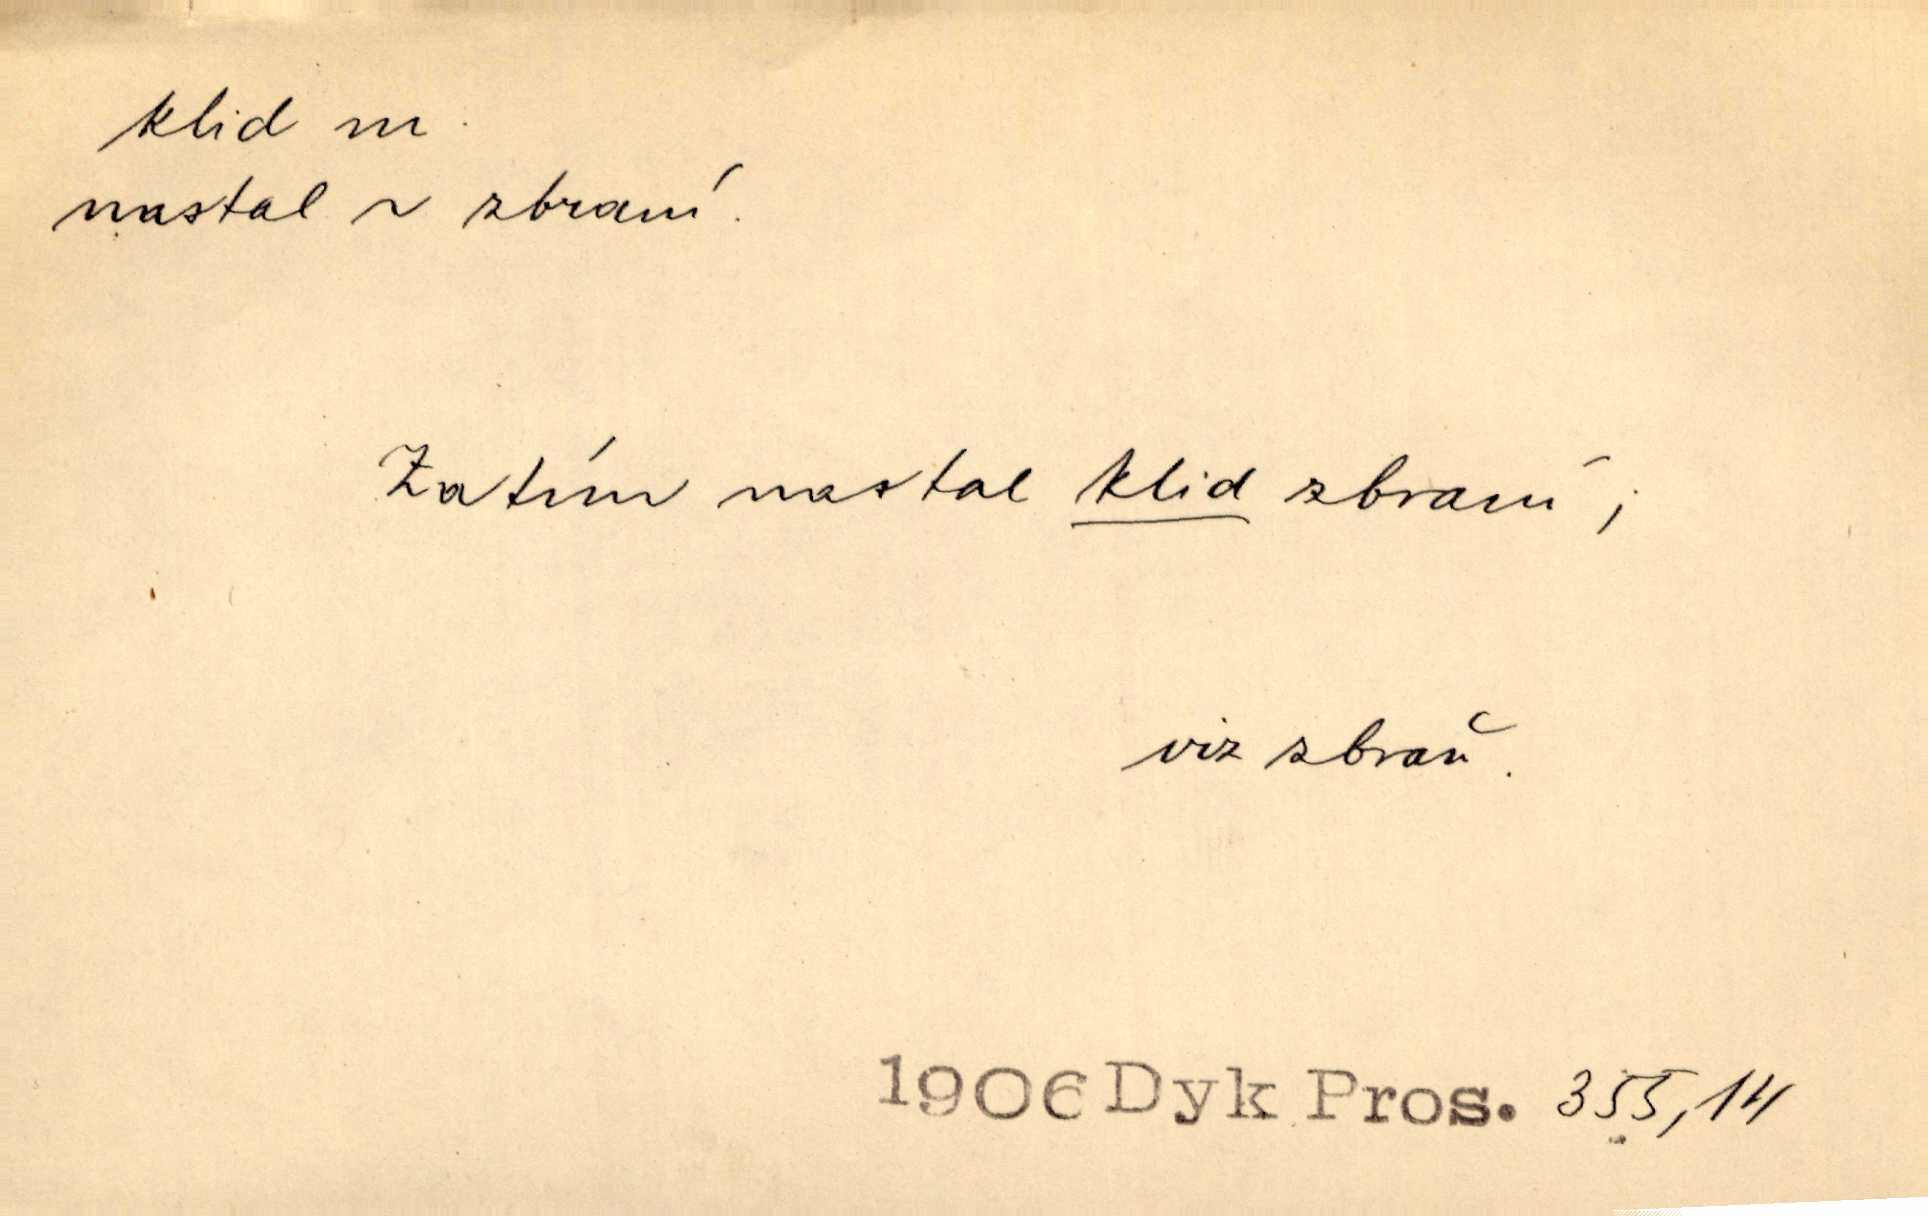 klid m.
nastal ~ zbraní.
Zatím nastal klid zbraní;
viz zbraň.
1906 Dyk Pros. 355,14